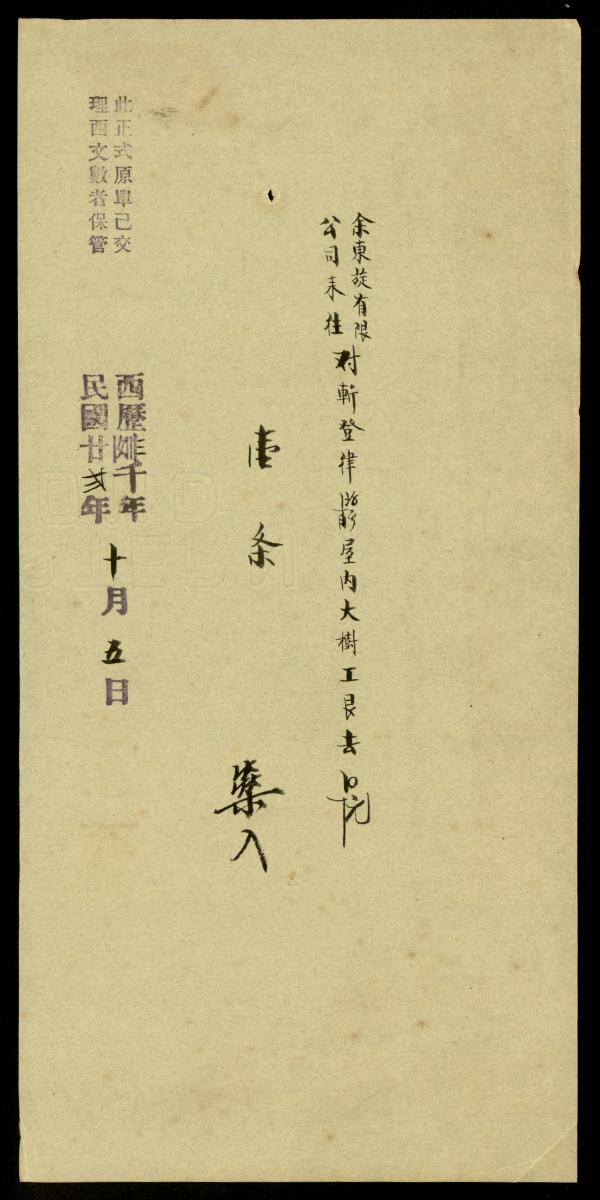 余東旋有限
公司来往
对斬登律
屋内大樹工艮去
壹条
入
西歷 千年
民國廿弍年
十月五日
此正式原單已交
理西文數者保管